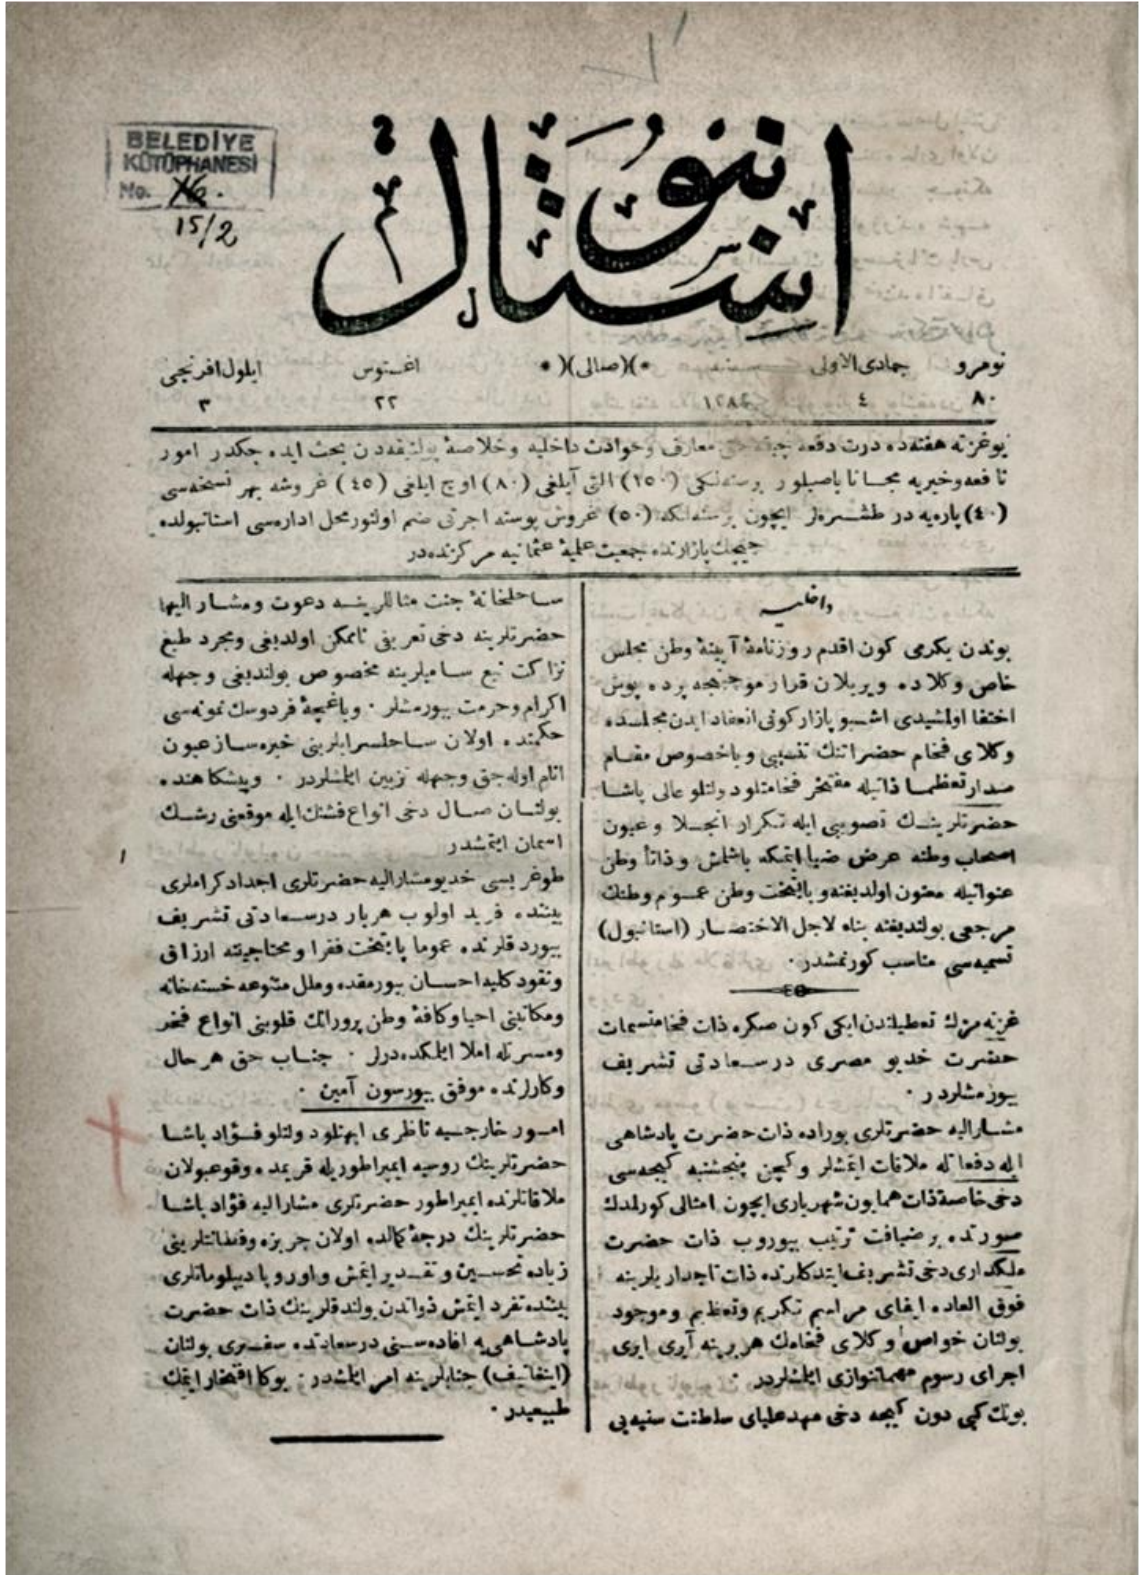 BELEDİYE
KÜTÜPHANESİ
No.
15/2
استانبول
نومرو جمادی الاولی (صالی) اغستوس ایلول افرنجی
٨٠ ٤ ١٢٨٤ ٢٢ ٣
بو غزته هفته‌ده درت دفعه چیقه‌جق معارف و حوادث داخلیه و خلاصهٔ پولتیقه‌دن بحث ایده جکدر امور
نافعه و خیریه مجانا باصیلور برسنه‌لکی (١٥٠) التی آیلغی (٨٠) اوچ ایلغی (٤٥) غروشه بهر نسخه‌سی
(٤٠) پاره‌یه در طشره‌لر ایچون برسنه‌لکه (٥٠) غروش پوسته اجرتی ضم اولنور محل اداره‌سی استانبولده
چیچک بازارنده جمعیت علمیهٔ عثمانیه مرکزنده‌در
داخلیه
بوندن یکرمی کون اقدم روزنامهٔ آیینهٔ وطن مجلس
خاص وکلاده ویریلان قرار موجبنجه پرده پوش
اختفا اولمشیدی اشبو پازار کونی انعقاد ایدن مجلسده
وکلای فخام حضراتنک تنسیبی و باخصوص مقام
صدارتعظما ذاتیله مفتخر فخامتلو دولتلو عالی پاشا
حضرتلرینک تصویبی ایله تکرار انجلا و عیون
اصحاب وطنه عرض ضیا ایتمکه باشلمش و ذاتاً وطن
عنوانیله معنون اولدیغنه و پایتخت وطن عموم وطنک
مرجعی بولندیغنه بناء لاجل الاختصار (استانبول)
تسمیه‌سی مناسب کورنمشدر ٠
غزته مزک تعطیلندن ایکی کون صکره ذات فخامتسمات
حضرت خدیو مصری درسعادتی تشریف
بیورمشلردر ٠
مشارالیه حضرتلری بوراده ذات حضرت پادشاهی
ایله دفعاتله ملاقات ایتمشلر و کچن پنجشنبه کیجه‌سی
دخی خاصهٔ ذات همایون شهریاری ایچون امثالی کورلمدک
صورتده بر ضیافت ترتیب بیوروب ذات حضرت
ملکداری دخی تشریف ایتدکلرنده ذات تاجداریلرینه
فوق العاده ایفای مراسم تکریم و تعظیم و موجود
بولنان خواص و کلای فخامک هربرینه آیری ایری
اجرای رسوم مهماننوازی ایلمشلردر ٠
بونک کبی دون کیجه دخی مهدعلیای سلطنت سنیه‌یی
ساحلخانهٔ جنت مثاللرینه دعوت و مشار الیها
حضرتلرینه دخی تعریفی ناممکن اولدیغی و مجرد طبع
نزاکت نبع سامیلرینه مخصوص بولندیغی وجهله
اکرام و حرمت بیورمشلر ٠ و باغچهٔ فردوسک نمونه‌سی
حکمنده اولان ساحلسرایلرینی خیره‌ساز عیون
انام اوله‌جق وجهله تزیین ایلمشلردر ٠ و پیشکاهنده
بولنان صال دخی انواع فشنک ایله موقعنی رشک
اسمان ایتمشدر
طوغریسی خدیو مشارالیه حضرتلری اجداد کراملری
بیننده فرید اولوب هربار درسعادتی تشریف
بیوردقلرنده عموما پایتخت فقرا و محتاجینه ارزاق
و نقود کلیه احسان بیورمقده و ملل متنوعه خسته‌خانه
و مکاتبنی احیا و کافهٔ وطن پرورانک قلوبنی انواع فخر
و مسرتله املا ایلمکده‌درلر ٠ جناب حق هر حال
و کارلرنده موفق بیورسون آمین ٠
امور خارجیه ناظری ابهتلو دولتلو فؤاد پاشا
حضرتلرینک روسیه ایمپراطوریله قریمده وقوعبولان
ملاقاتلرنده ایمپراطور حضرتلری مشارالیه فؤاد پاشا
حضرتلرینک درجهٔ کمالده اولان جربزه و فطانتلرینی
زیاده تحسین و تقدیر ایتمش و اوروپا دیپلوماتلری
بیننده تفرد ایتمش ذواتدن بولندقلرینک ذات حضرت
پادشاهی‌یه افاده‌سنی درسعادتده سفیری بولنان
(ایغناتیف) جنابلرینه امر ایلمشدر ٠ بوکا افتخار ایتمک
طبیعیدر ٠